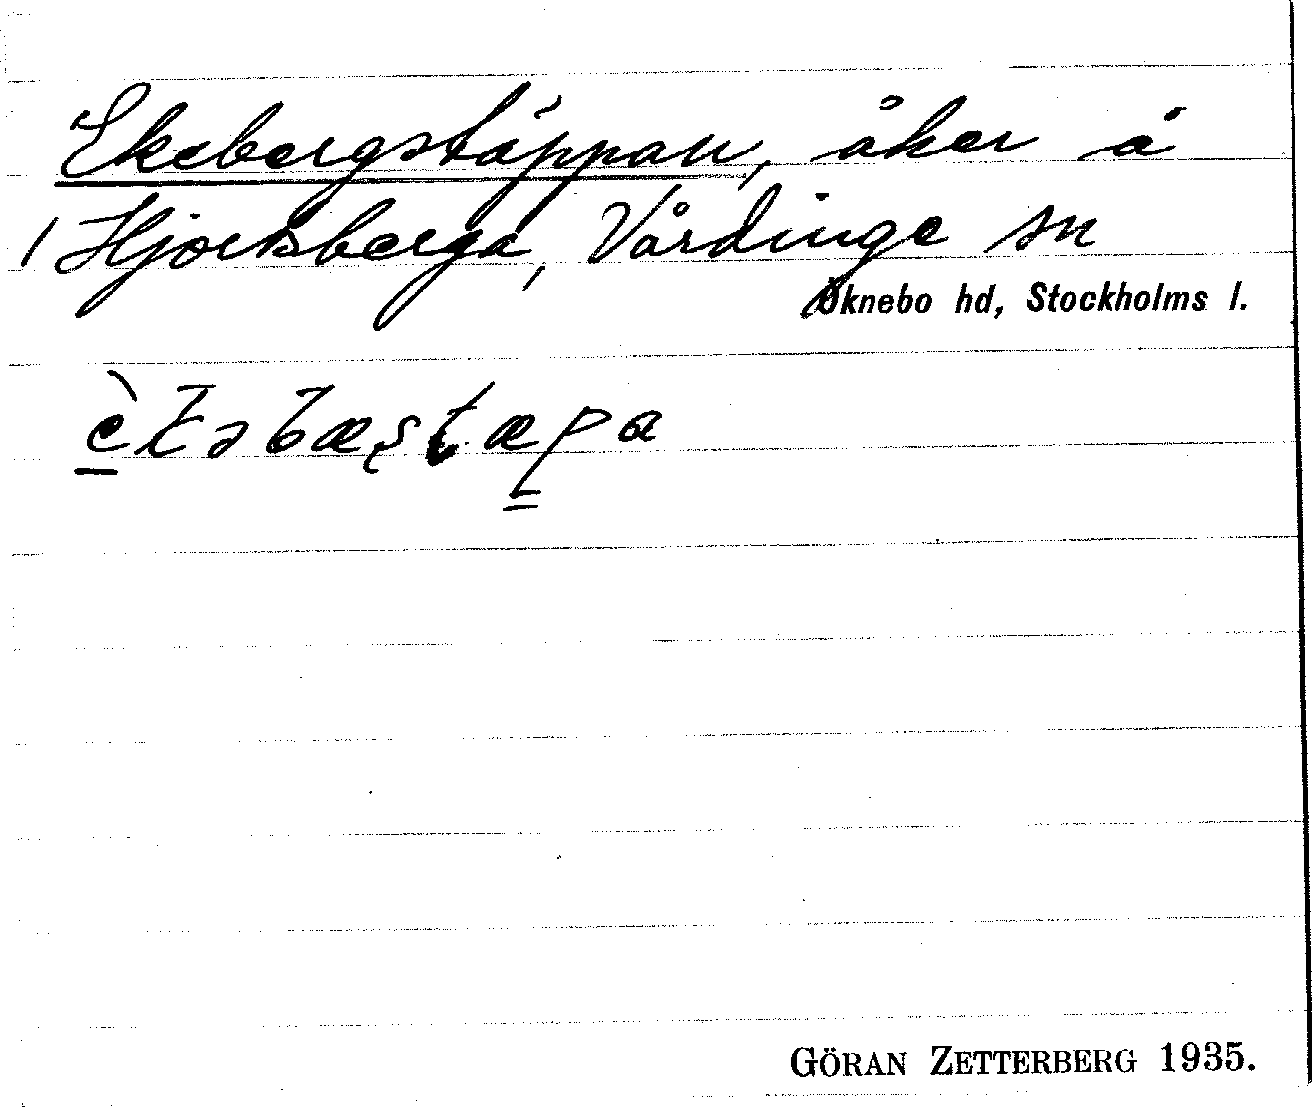 Ekebergstäppan, åker å
/ Hjortsberga, Vårdinge sn
Öknebo hd, Stockholms l.
èkəbæștæpa
GÖRAN ZETTERBERG 1935.